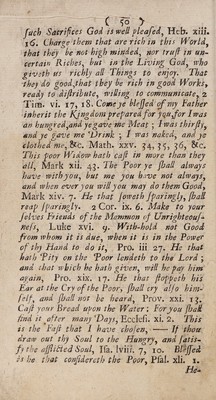 ( 50 )
such Sacrifices God is well pleased, Heb. xiii.
16. Charge them that are rich in this World,
that they be not high minded, nor trust in un-
certain Riches, but in the Living God, who
giveth us richly all Things to enjoy. That
they do good, that they be rich in good Works,
ready to distribute, willing to communicate, 2
Tim. vi. 17, 18. Come ye blessed of my Father
inherit the Kingdom prepared for you, for I was
an hungred, and ye gave me Meat; I was thirsty,
and ye gave me Drink; I was naked, and ye
clothed me, &c. Math. xxv. 34, 35, 36, &c.
This poor Widow hath cast in more than they
all, Mark xii. 43. The Poor ye shall always
have with you, but me you have not always,
and when ever you will you may do them Good,
Mark xiv. 7. He that soweth sparingly, shall
reap sparingly. 2 Cor. ix. 6. Make to your
selves Friends of the Mammon of Unrighteous-
ness, Luke xvi. 9. With-hold not Good
from whom it is due, when it is in the Power
of thy Hand to do it, Pro. iii 27. He that
hath Pity on the Poor lendeth to the Lord;
and that which he hath given, will he pay him
again, Pro. xix. 17. He that stoppeth his
Ear at the Cry of the Poor, shall cry also him-
self, and shall not be heard, Prov. xxi. 13.
Cast your Bread upon the Water; For you shall
find it after many Days, Ecclesi. xi. 2. This
is the Fast that I have chosen, — If thou
draw out thy Soul to the Hungry, and satis-
fy the afflicted Soul, Isa. lviii. 7, 10. Blessed
is he that considereth the Poor, Psal. xli. 1.
He-